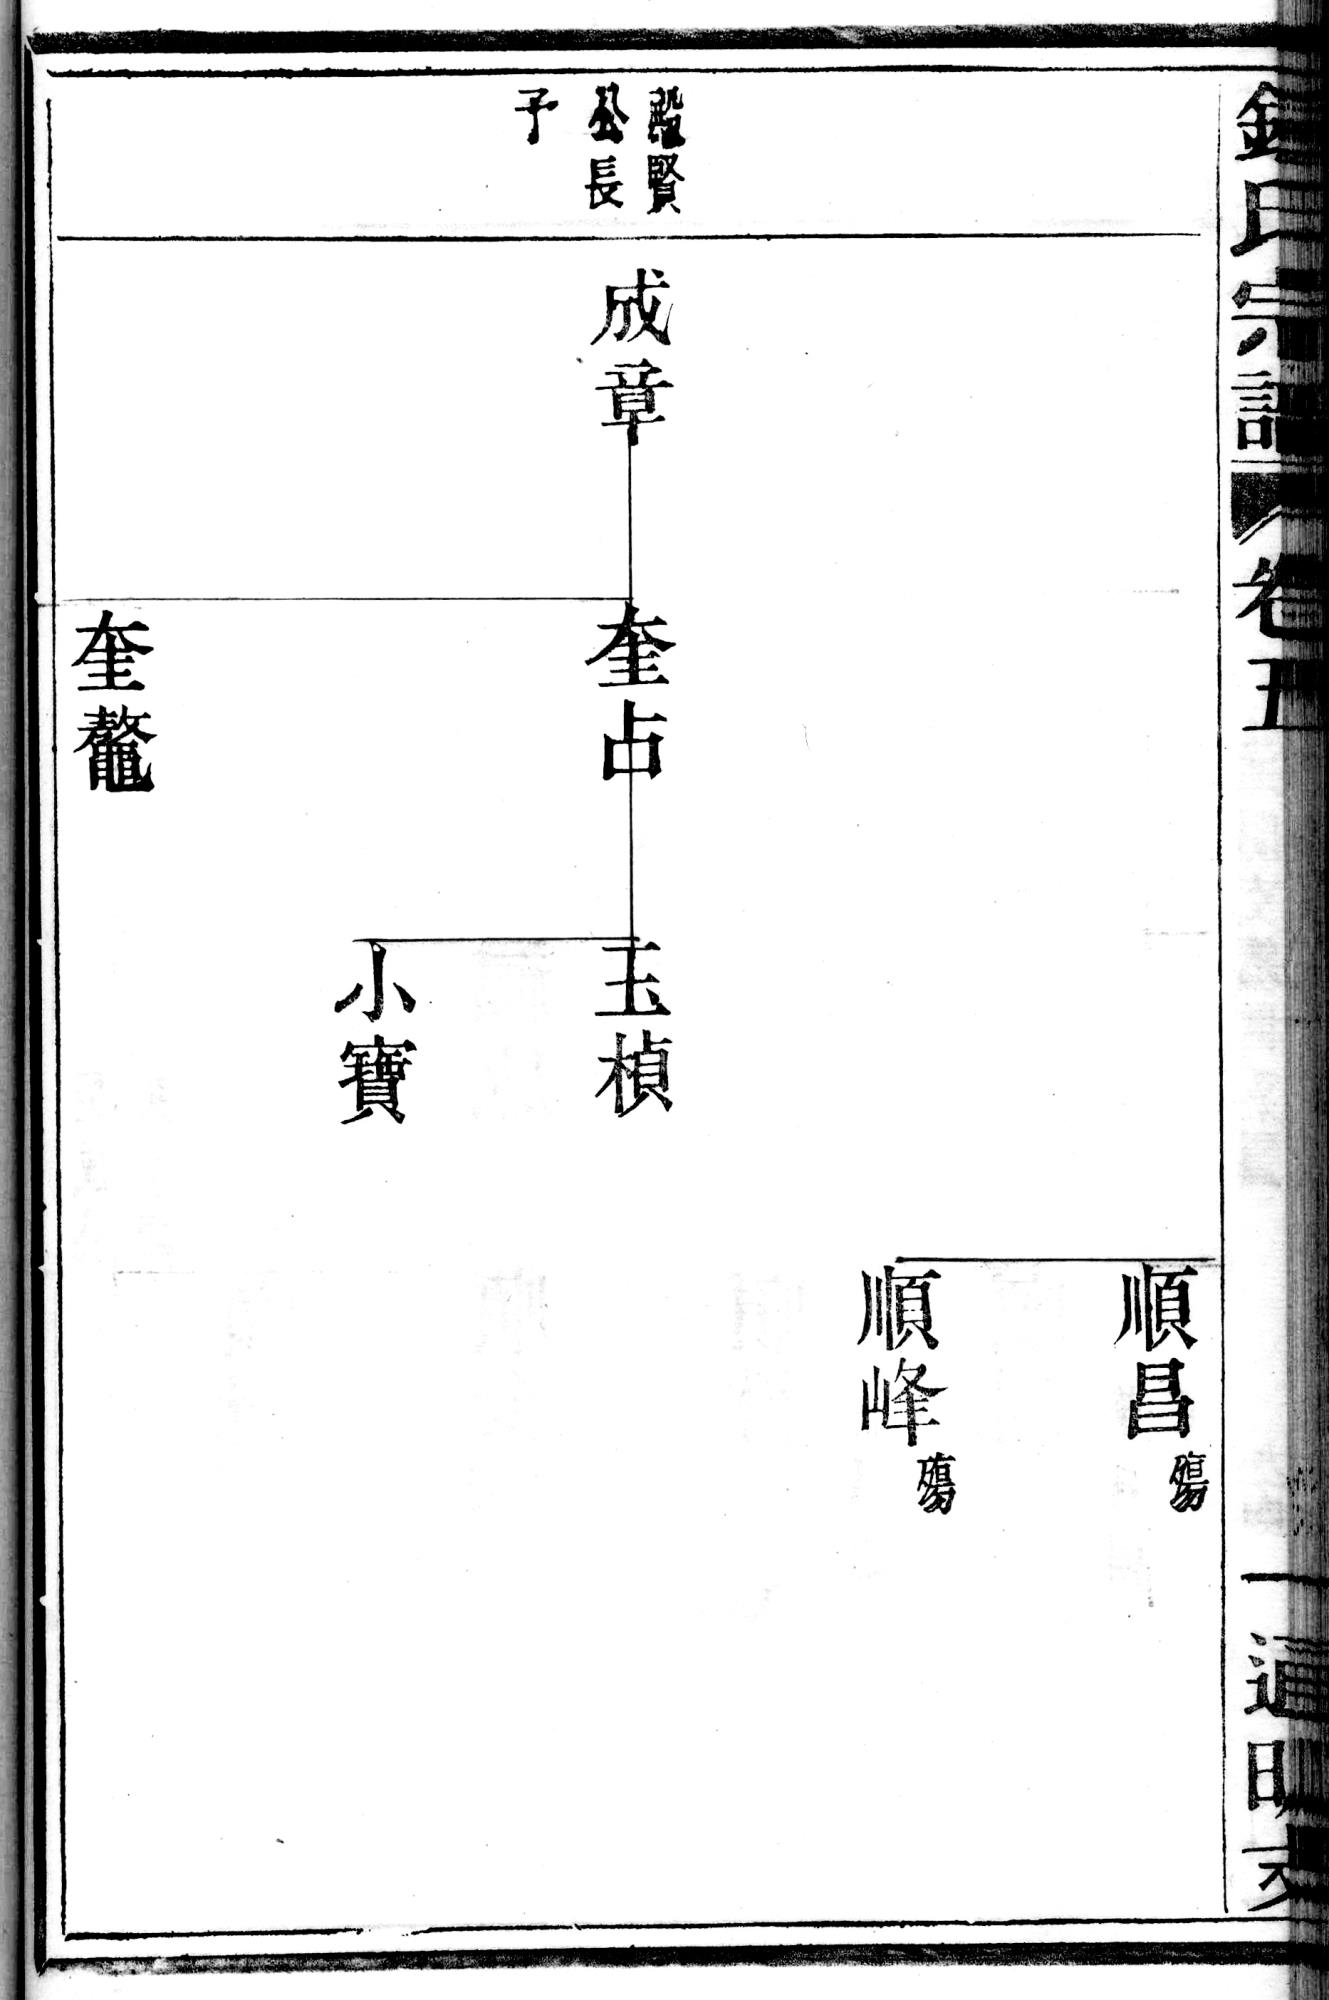 氏宗譜
卷五
通明支
順昌殤
順峰殤
賢
公長
子
成章
奎占
玉楨
小寶
奎鼇